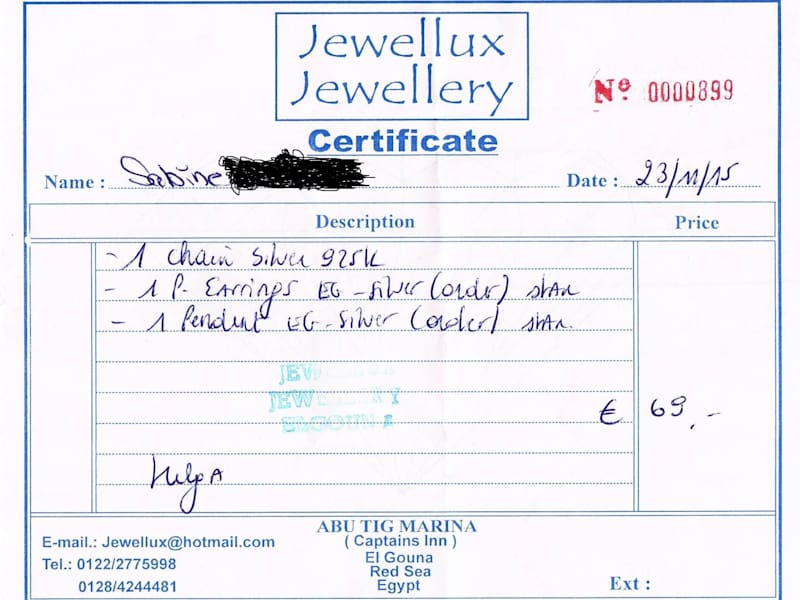 Jewellux
Jewellery
Nº 0000899
Certificate
Name : Sabine
Date : 23/11/15
Description Price
- 1 Chain Silver 925K
- 1 P. Earrings EG - Silver (order) star
- 1 Pendent EG - Silver (order) star.
JEWELLUX
JEWELLERY
ELGOUNA
€ 69,-
Helga
E-mail.: Jewellux@hotmail.com
Tel.: 0122/2775998
0128/4244481
ABU TIG MARINA
( Captains Inn )
El Gouna
Red Sea
Egypt
Ext :